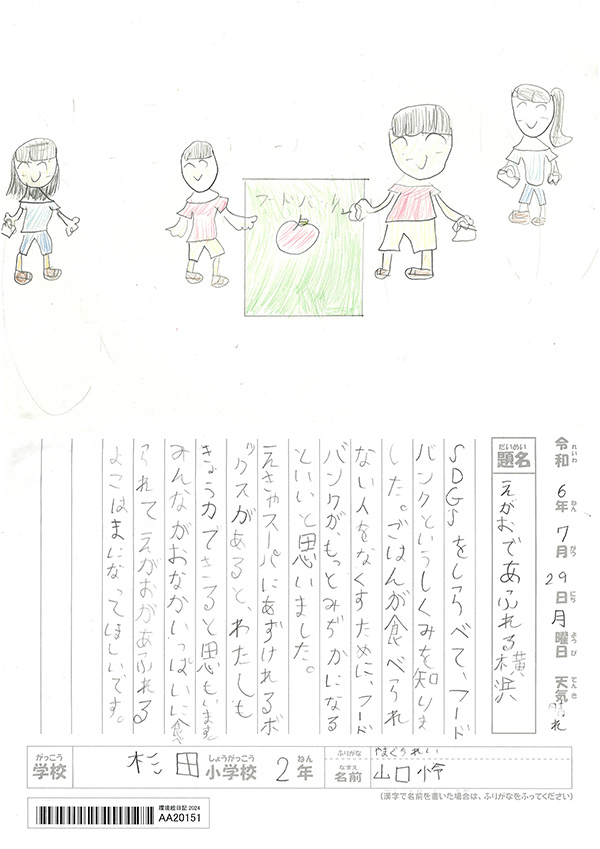 フードバンク
令和6年7月29日月曜日 天気 晴れ
れいわ ねん がつ にち ようび てんき
だいめい
題名 えがおであふれる横浜
SDGSをしらべて、フード
バンクというしくみを知りま
した。ごはんが食べられ
ない人をなくすために、フード
バンクが、もっとみぢかになる
といいと思いました。
えきやスーパーにあずけれるボ
ックスがあると、わたしも
きょう力できると思もいます。
みんながおなかいっぱいに食
られて えがおがあふれる
よこはまになってほしいです。
がっこう しょうがっこう ねん
学校 杉田小学校 2年
ふりがな やまぐちれい
なまえ
名前 山口怜
(漢字で名前を書いた場合は、ふりがなをふってください)
環境絵日記2024
AA20151